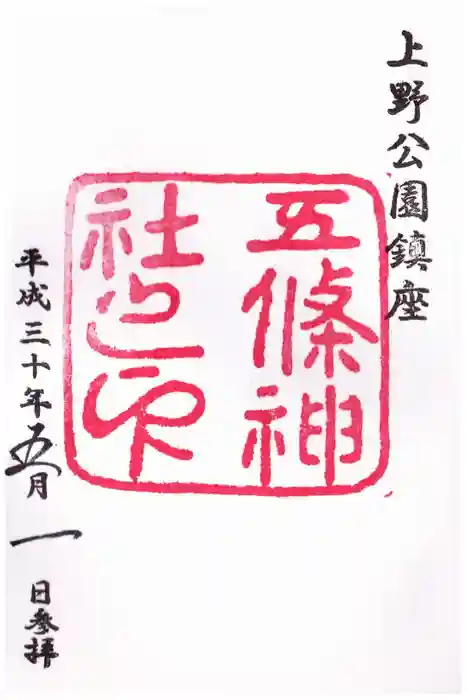 上野公園鎮座
五條神
社之印
平成三十年五月一日参拝